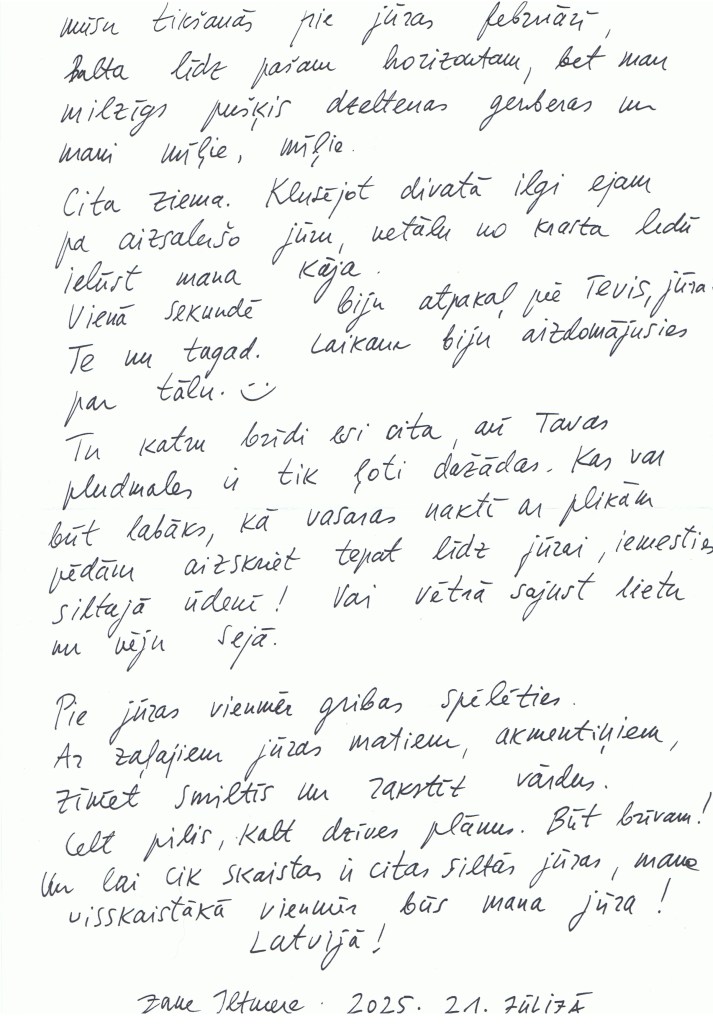 mūsu tikšanās pie jūras februārī,
Balta līdz pašam horizontam, bet man
milzīgs pušķis dzeltenas gerberas un
mani mīļie, mīļie.
Cita ziema. Klusējot divatā ilgi ejam
pa aizsalušo jūru, netālu no krasta ledū
ielūst mana kāja.
Vienā sekundē biju atpakaļ pie Tevis, jūra.
Te un tagad. Laikam biju aizdomājusies
par tālu. ☺
Tu katru brīdi esi cita, arī Tavas
pludmales ir tik ļoti dažādas. Kas var
būt labāks, kā vasaras naktī ar plikām
pēdām aizskriet tepat līdz jūrai, iemesties
siltajā ūdenī! Vai vētrā sajust lietu
un vēju sejā.
Pie jūras vienmēr gribas spēlēties.
Ar zaļajiem jūras matiem, akmentiņiem,
zīmēt smiltīs un rakstīt vārdus.
Celt pilis, kalt dzīves plānus. Būt brīvam!
Un lai cik skaistas ir citas siltās jūras, mana
visskaistākā vienmēr būs mana jūra!
Latvijā!
Zane 2025. 21. jūlijā